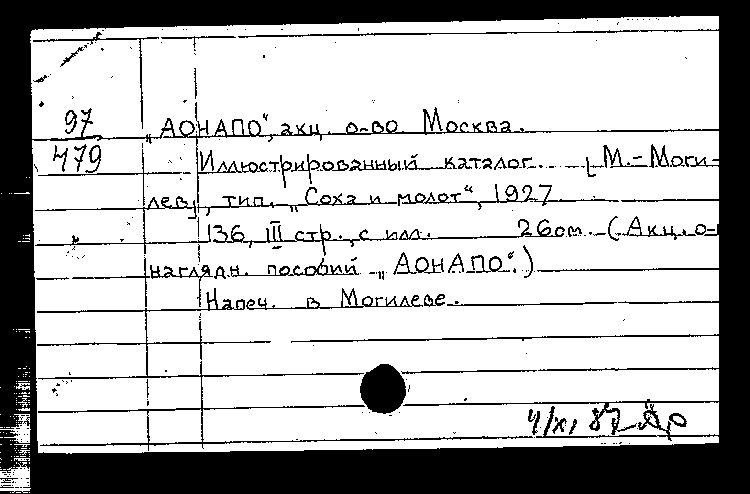 97
479
„АОНАПО“, акц. о-во Москва.
Иллюстрированный каталог. [М.-Моги-
лев], тип. „Соха и молот“, 1927
136, III стр., с илл. 26 см. (Акц. о-
наглядн. пособий „АОНАПО“.)
Напеч. в Могилеве.